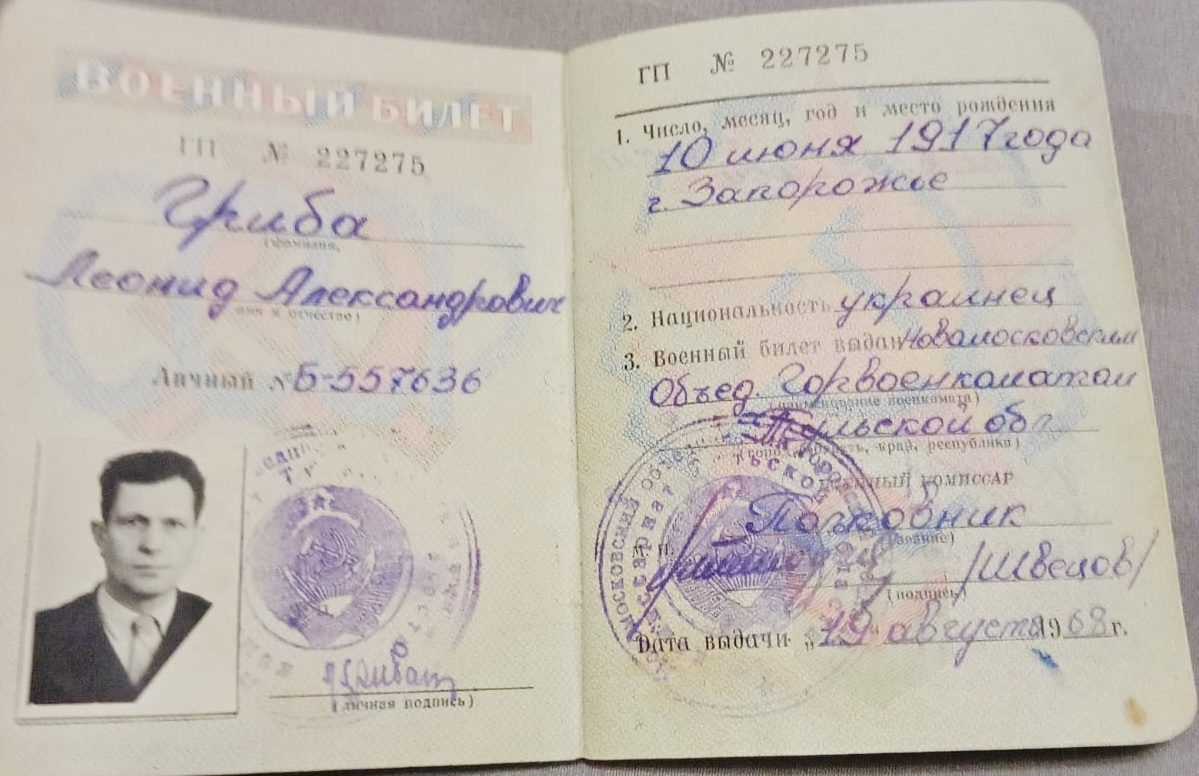 ВОЕННЫЙ БИЛЕТ
ГП № 227275
Гриба
(фамилия)
Леонид Александрович
(имя и отчество)
Личный № Б-557636
(личная подпись)
ГП № 227275
1. Число, месяц, год и место рождения
10 июня 1917 года
г. Запорожье
2. Национальность украинец
3. Военный билет выдан Новомосковским
Объед. Горвоенкоматом
(наименование военкомата)
Тульской обл
(город, область, край, республика)
Военный комиссар
Полковник
(звание)
М. П.
/Швецов/
(подпись)
Дата выдачи „19“ августа 1968 г.